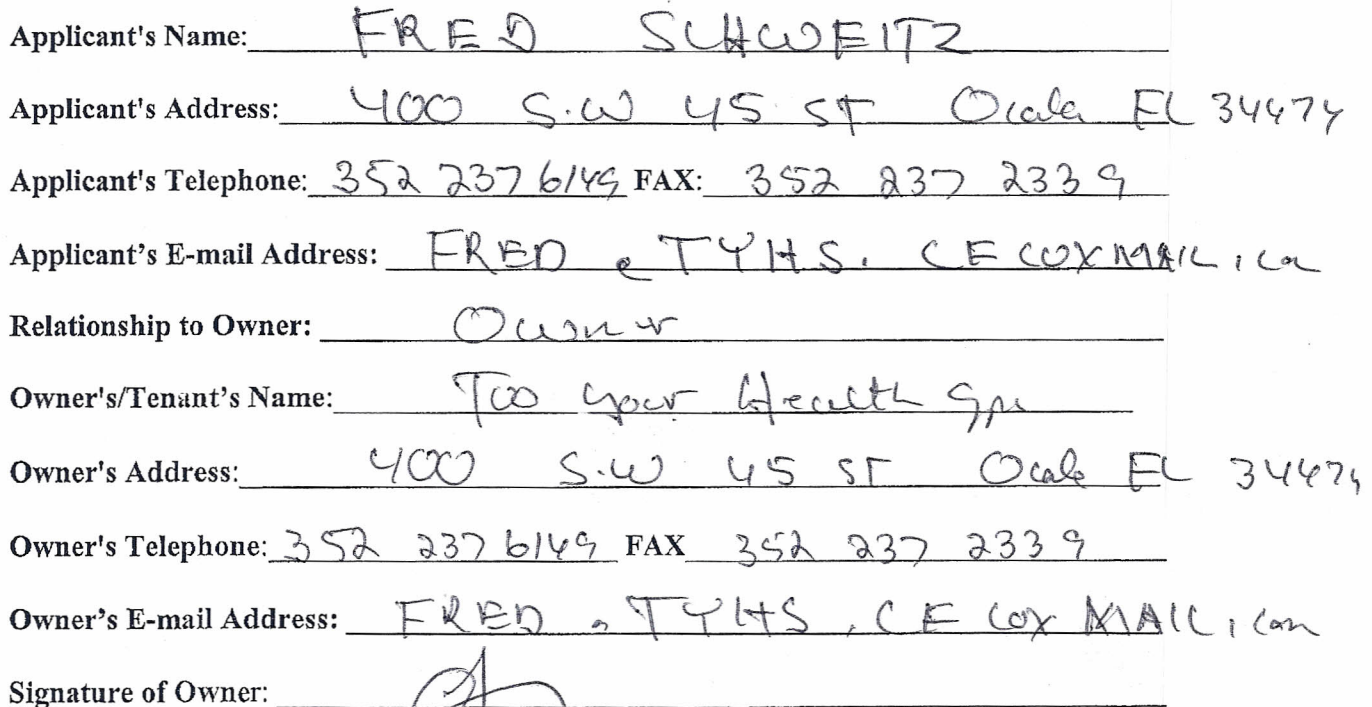 Applicant's Name: FRED SCHWEITZ
Applicant's Address: 400 S.W 45 ST Ocala FL 34474
Applicant's Telephone: 352 237 6149 FAX: 352 237 2339
Applicant's E-mail Address: FRED @ TYHS. CE COXMAIL.com
Relationship to Owner: Owner
Owner's/Tenant's Name: Too Your Health
Owner's Address: 400 S.W 45 ST Ocala FL 34474
Owner's Telephone: 352 237 6149 FAX 352 237 2339
Owner's E-mail Address: FRED TYHS. CE COX MAIL.com
Signature of Owner: